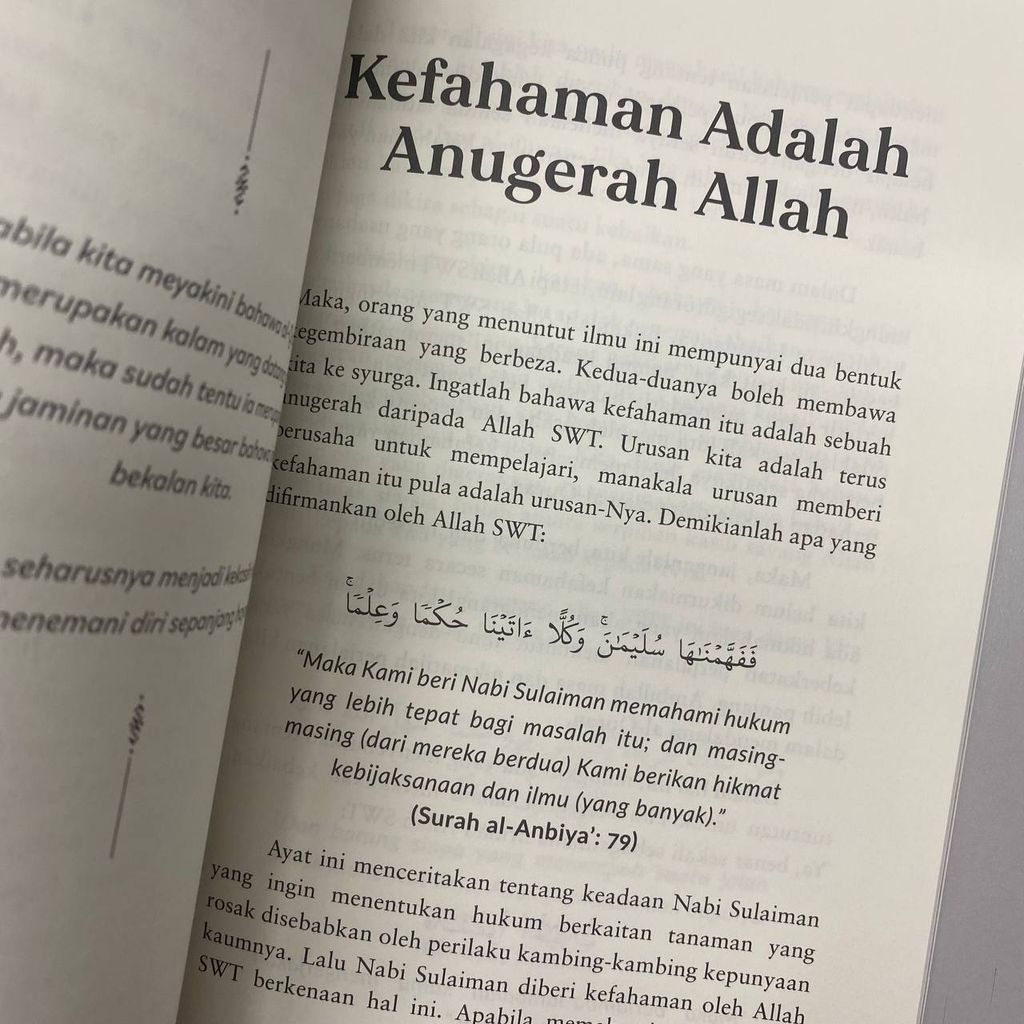 abila kita meyakini bahawa
merupakan kalam yang datang
h, maka sudah tentu ia
jaminan yang besar
bekalan kita.
seharusnya menjadi
menemani diri sepanjang
Kefahaman Adalah
Anugerah Allah
Maka, orang yang menuntut ilmu ini mempunyai dua bentuk
kegembiraan yang berbeza. Kedua-duanya boleh membawa
kita ke syurga. Ingatlah bahawa kefahaman itu adalah sebuah
anugerah daripada Allah SWT. Urusan kita adalah terus
berusaha untuk mempelajari, manakala urusan memberi
kefahaman itu pula adalah urusan-Nya. Demikianlah apa yang
difirmankan oleh Allah SWT:
فَفَهَّمْنَـٰهَا سُلَيْمَـٰنَ ۚ وَكُلًّا ءَاتَيْنَا حُكْمًا وَعِلْمًا ۚ
“Maka Kami beri Nabi Sulaiman memahami hukum
yang lebih tepat bagi masalah itu; dan masing-
masing (dari mereka berdua) Kami berikan hikmat
kebijaksanaan dan ilmu (yang banyak).”
(Surah al-Anbiya’: 79)
Ayat ini menceritakan tentang keadaan Nabi Sulaiman
yang ingin menentukan hukum berkaitan tanaman yang
rosak disebabkan oleh perilaku kambing-kambing kepunyaan
kaumnya. Lalu Nabi Sulaiman diberi kefahaman oleh Allah
SWT berkenaan hal ini. Apabila